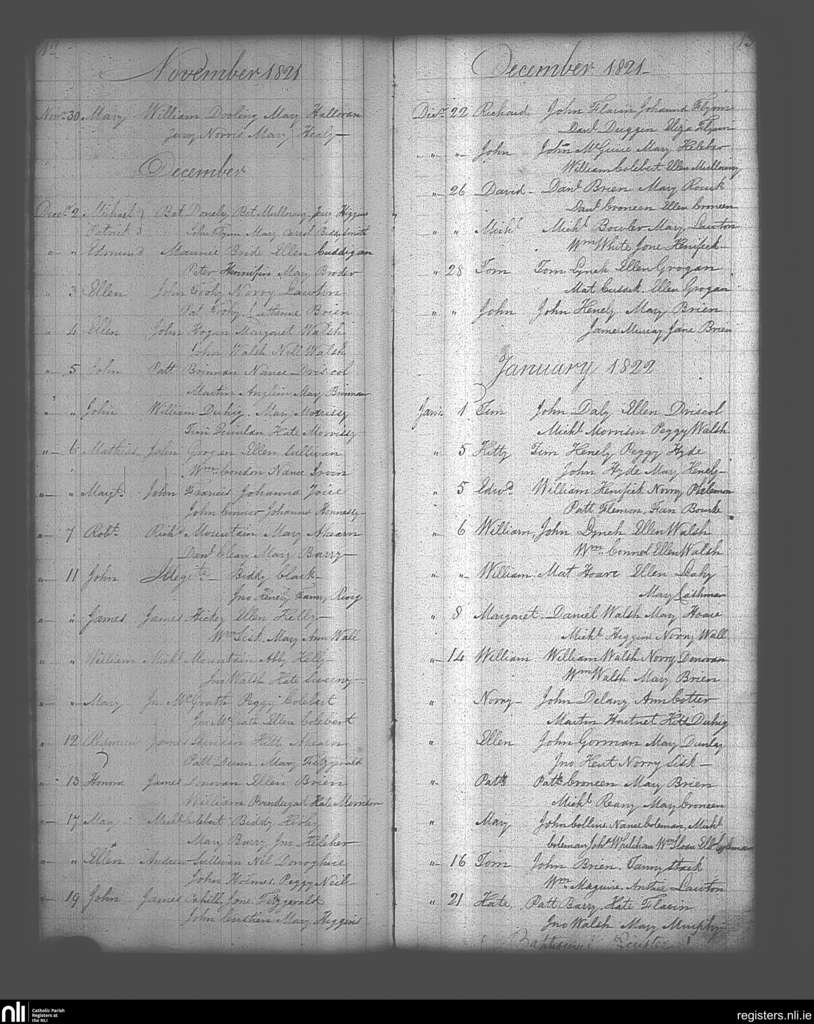 November 1821
Novr. 30 Mary William Dooling Mary Halloran
Jerry Norris Mary Healy
December
Decr. 2 Michael Bat Mullowny Jno Higgins
Patrick John Flynn Mary Bidd Smith
" " Edmund Maurice Bride Ellen Cuddigan
Peter Mary Broder
" 3 Ellen John Norry
Catherine Brien
" 4 Ellen John Hogan Margaret Walsh
John Walsh Nell Walsh
" 5 John Patt Brennan Nance Driscol
Martin Anglim Mary Brennan
" " John William Duhig Mary Morrissy
Tim Quinlan Kate Morrissy
" 6 Mathias John Grogan Ellen Sullivan
Wm. Condon Nance Irvin
" " Margt. John Francis Johanna Joice
John Connor Johanna Hennessy
" 7 Robt. Richd. Mountain Mary Ahearn
Danl. Clary Mary Barry
" 11 John Illegite. Biddy Clark
Jno Henely Fanny
" " James James Hickey Ellen Kelly
Wm. Sisk Mary Ann Wall
" " William Michl. Mountain Abby Kelly
Jno Walsh Kate Sweeny
" " Mary Jn McGrath Peggy Colebert
Jno McGrath Ellen Colebert
" 12 James Kitt Ahearn
Patt Dunn Mary Fitzgerald
" 13 Honora James Donovan Ellen Brien
William Prendergast Kate Morrison
" 17 Mary Michl. Colebert Biddy Healy
Mary Barry Jno Keleher
" " Ellen Andrew Sullivan Nel Donoghue
John Holmes Peggy Neil
" 19 John James Cahill Jone Fitzgerald
John Mary Higgins
December 1821
Decr. 22 Richard John Flavin Johanna Flynn
Danl. Duggin Eliza Flynn
" " John John McGuire Mary Keleher
William Colebert Ellen Mullowny
" 26 David Danl. Brien Mary Rourk
Danl. Croneen Ellen Croneen
" " Michl. Michl. Bowler Mary Lawton
Wm. White Jone Henifick
" 28 Tom Tom Lynch Ellen Grogan
Mat Cussek Ellen Grogan
" " John John Henely Mary Brien
James Murray Jane Brien
January 1822
Jany. 1 Tim John Daly Ellen Driscol
Michl. Morrison Peggy Walsh
" 5 Kitty Tim Henely Peggy Hyde
John Hyde Mary Henely
" 5 Edwd. William Henifick Norry
Patt Flemon Han Bourke
" 6 William John Lynch Ellen Walsh
Wm. Connel Ellen Walsh
" " William Mat Hoare Ellen Leahy
Mary Cashman
" 8 Margaret Daniel Walsh Mary Hoare
Michl. Higgins Norry Wall
" 14 William William Walsh Norry Donovan
Wm. Walsh Mary Brien
" Norry John Delany Ann Cotter
Martin Hartnet Kitt Duhig
" Ellen John Gorman Mary Dunlay
Jno Kent Norry Sisk
" Pattk. Pattk. Croneen Mary Brien
Michl. Reary Mary Croneen
" Mary John Collins Nance Coleman Michl.
Coleman Johh. Whelehan Wm. Sloan Elln. Coleman
" 16 Tom John Brien Fanny Stack
Wm. Maguire Anstice Lawton
" 21 Kate Patt Barry Kate Flavin
Jno Walsh Mary Murphy
nli Catholic Parish
Registers at
the NLI
registers.nli.ie